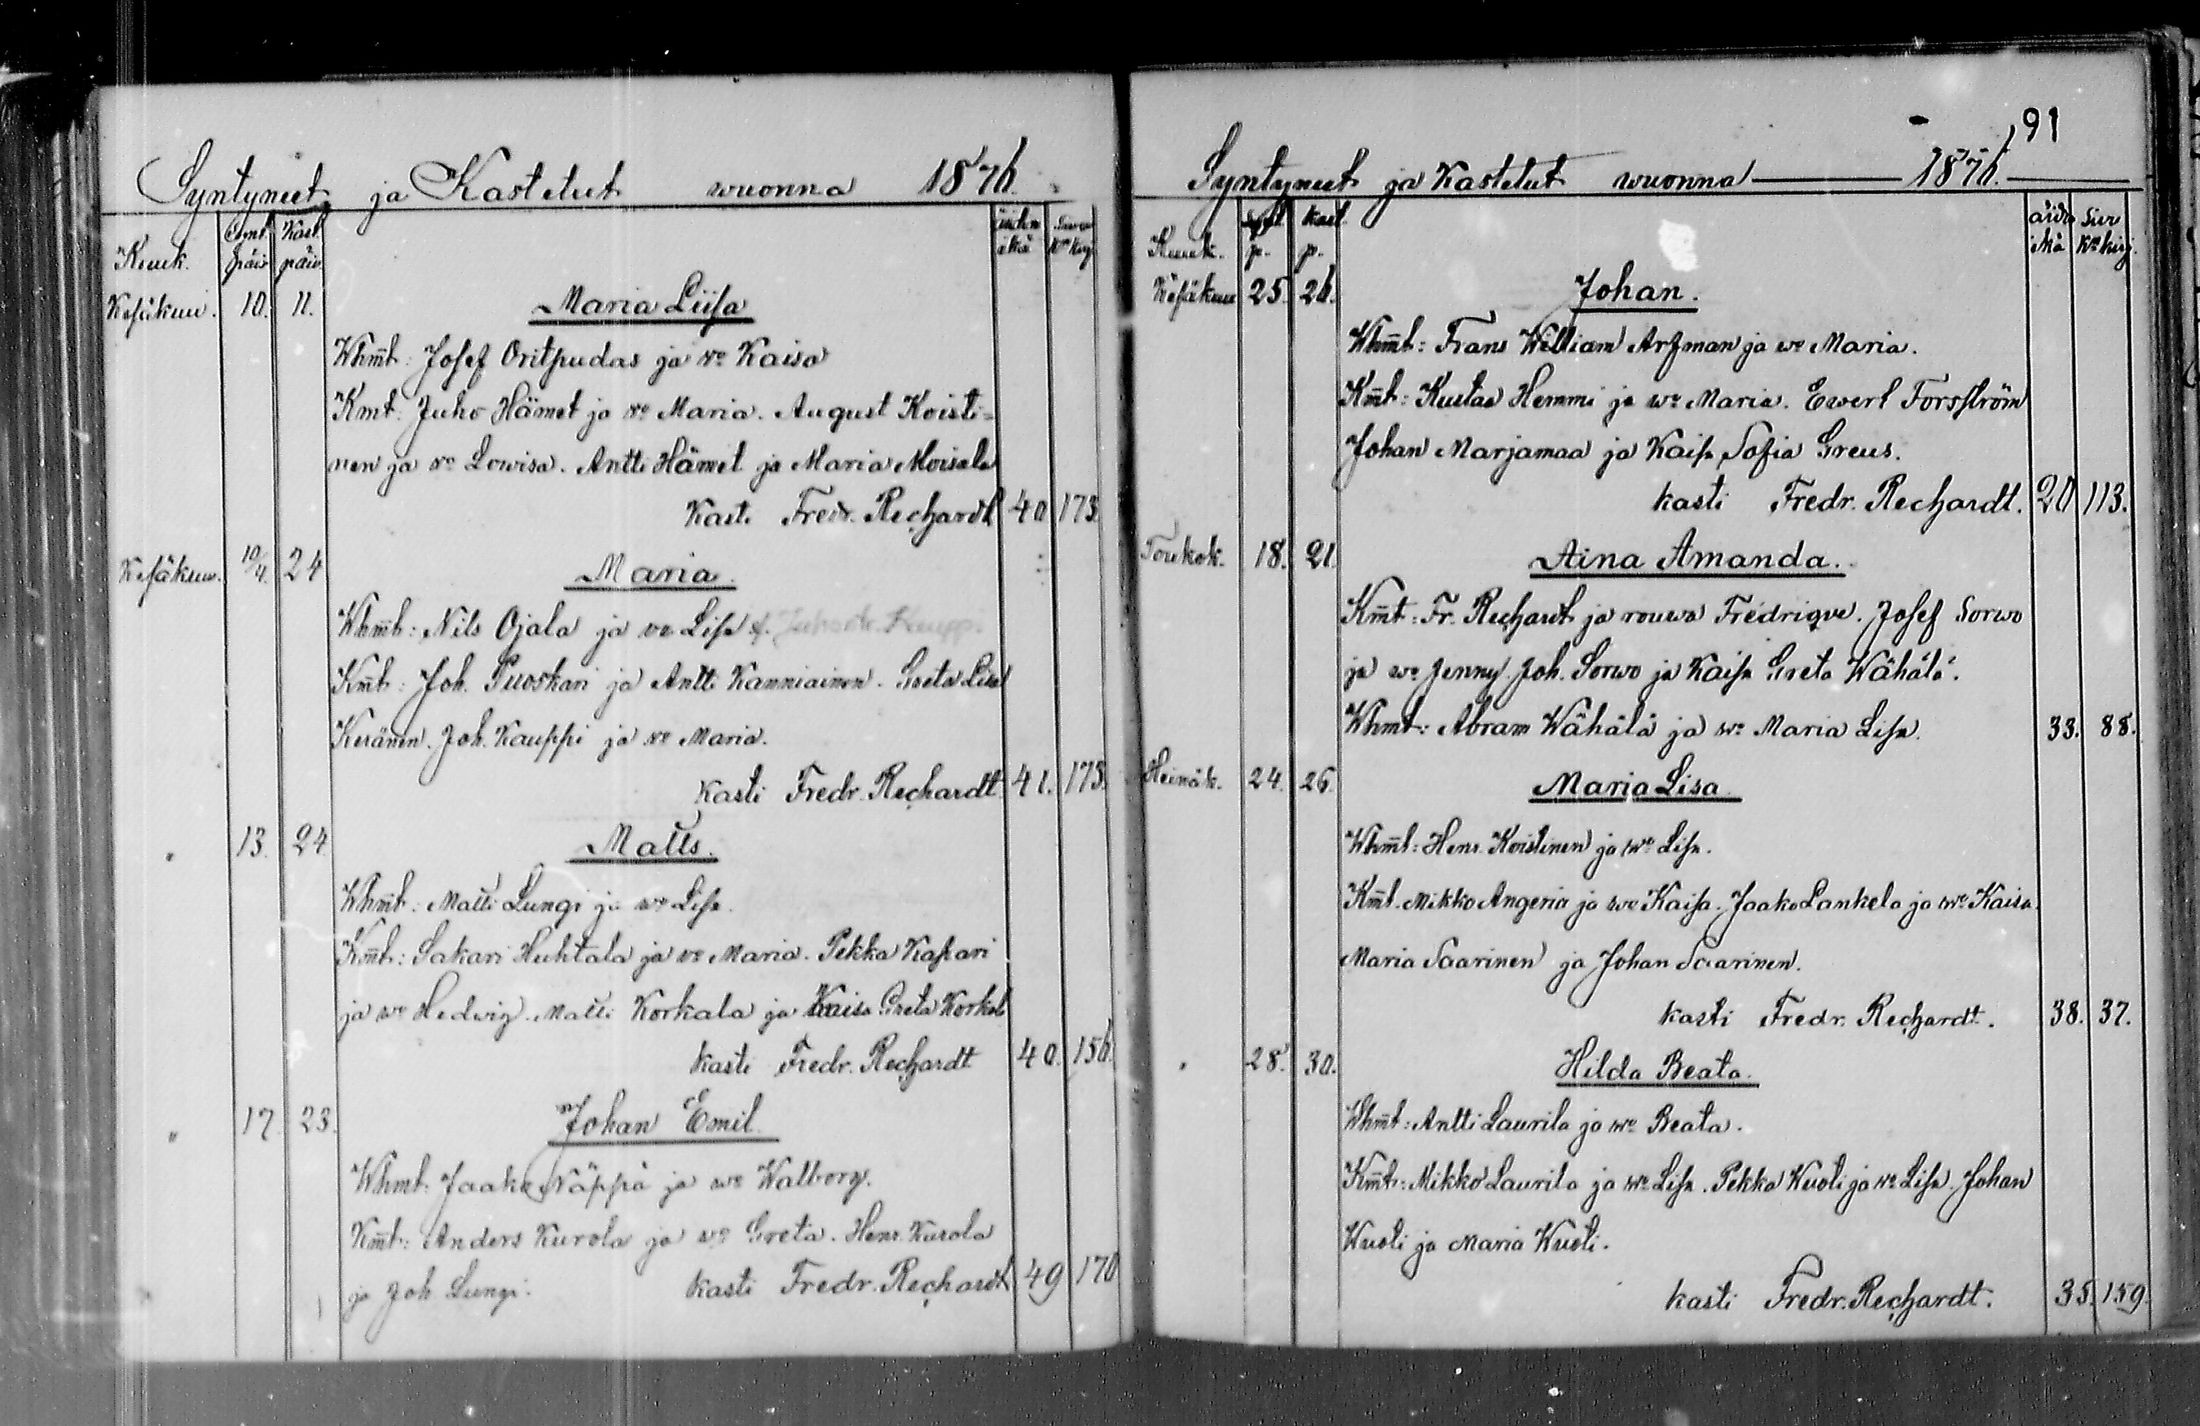 Syntyneet ja Kastetut wuonna 1876.
Kuuk. Synt. päiv Kast. päiv. äitin ikä Suur Kr. kirj.
Kesäkuu. 10. 11. Maria Liisa
Whmt: Josef Oritpudas ja wo Kaisa
Kmt: Juho Hämet ja wo Maria. August Koisti=
nen ja wo Lowisa. Antti Hämet ja Maria Moisala
Kasti Fredr. Rechardt 40 173.
Kesäkuu. 10/4. 24 Maria.
Whmt: Nils Ojala ja wo Lisa
Kmt: Joh. Puoskari ja Antti Kanniainen. Greta Lisa
Keränen. Joh. Kauppi ja wo Maria.
Kasti Fredr. Rechardt 41. 173.
" 13. 24 Matts.
Whmt: Matti Lungi ja wo Lisa.
Kmt: Sakari Huhtala ja wo Maria. Pekka Kaskari
ja wo Hedwig. Matti Korkala ja Kaisa Greta Korkal
Kasti Fredr. Rechardt 40. 156.
" 17. 23. Johan Emil.
Whmt: Jaako Näppä ja wo Walborg.
Kmt: Anders Kurola ja wo Greta. Henr. Kurola
ja Joh. Lungi. Kasti Fredr. Rechardt 49 170
91
Syntyneet ja Kastetut wuonna 1876.
Kuuk. Synt. p. Kast. p. äidin ikä Suur Kr. kirj.
Kesäkuu 25. 26. Johan.
Whmt: Frans William Arfman ja wo Maria.
Kmt: Kustaa Hemmi ja wo Maria. Ewert Forsström
Johan Marjamaa ja Kaisa Sofia Greus.
kasti Fredr. Rechardt. 20 113.
Toukok. 18. 21. Aina Amanda.
Kmt: Fr. Rechardt ja rouwa Fredrique. Josef Sorwo
ja wo Jenny. Joh. Sorwo ja Kaisa Greta Wähälä.
Whmt: Abram Wähälä ja wo Maria Lisa. 33. 88.
Heinäk. 24. 26. Maria Lisa.
Whmt: Henr. Koistinen ja wo Lisa.
Kmt. Mikko Angeria ja wo Kaisa. Jaako Lankela ja wo Kaisa.
Maria Saarinen ja Johan Saarinen.
kasti Fredr. Rechardt. 38. 37.
" 28. 30. Hilda Beata.
Whmt: Antti Laurila ja wo Beata.
Kmt: Mikko Laurila ja wo Lisa. Pekka Kuoti ja wo Lisa. Johan
Kuoti ja Maria Kuoti.
kasti Fredr. Rechardt. 35. 159.